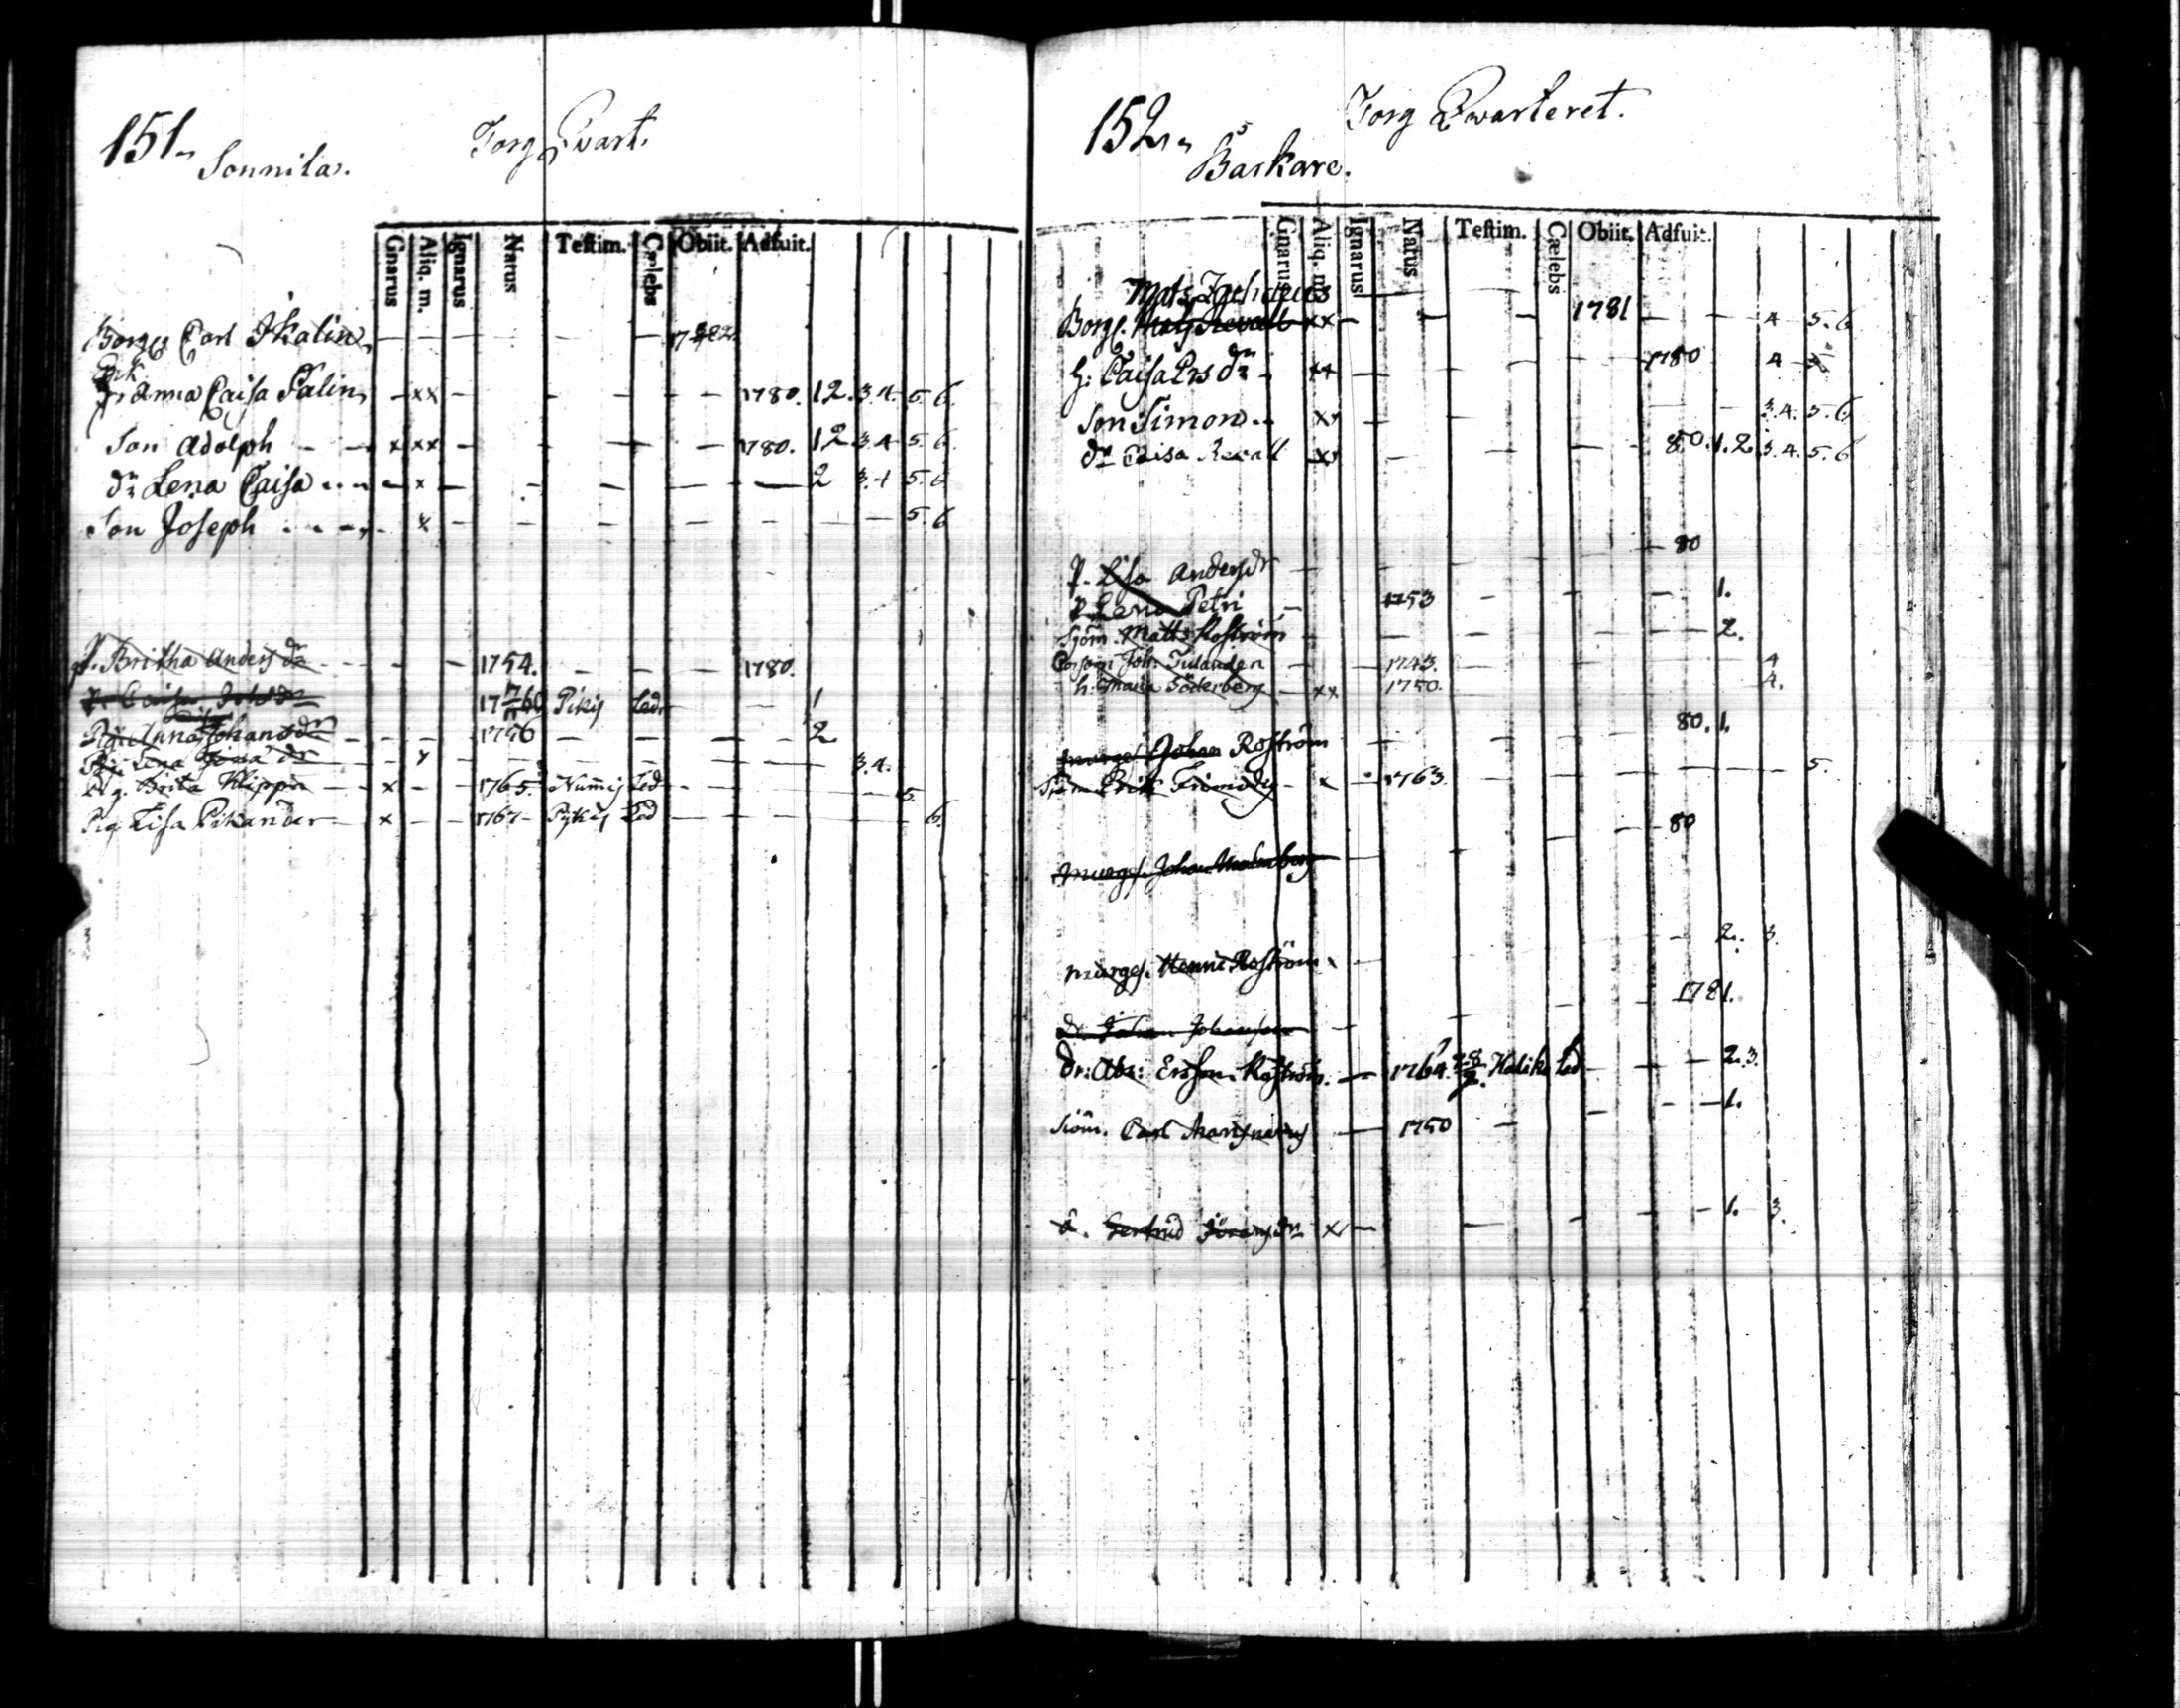 151. Torg Qvart.
Sonnila.
Gnarus Aliq. m. Ignarus Natus Testim. Cælebs Obiit. Adfuit.
Borg Carl Ikalin
Enk
Anna Caisa Palin xx 1780. 12. 3.4. 5. 6.
Son Adolph x xx 1780. 12 3 4 5. 6.
dr Lena Caisa x 2 3.4 5. 6
Son Joseph x 5. 6
P. Britha Anders dr 1754. 1780.
Pikis Led. 1
Pig. Anna Johans dr 1756 2
3.4.
Pig. Brita Klippa x 1765. Numis Led 5.
Pig. Lisa Pikander x 1767 Pykis Led 6.
152. Torg Qwarteret.
Baskare.
Gnarus Aliq. m. Ignarus Natus Testim. Cælebs Obiit. Adfuit.
Mats
Borg. xx 1781 4 5. 6
H: Caisa Ers dr xx 1780 4
Son Simon xx 3.4. 5. 6
dr Caisa Revall xx 80. 1. 2. 3. 4. 5. 6
P. Lisa Anders dr 80
P. Lena Petri 1753 1.
Sjöm. Matts Roström 2.
Joh. Tulanden 1743. 4
h: Maria Söderberg xx 1750. 4.
Johan Roström 80. 1.
Erik x 1763. 5.
murges. Johan 80
murges. Henric Roström x 2. 3.
Johan Johansson 1781.
Dr: Abr: Ersson Roström 1764. Haliko Led 2. 3.
Siöm. Carl 1750 1.
Gertrud Jörans dr x 1. 3.